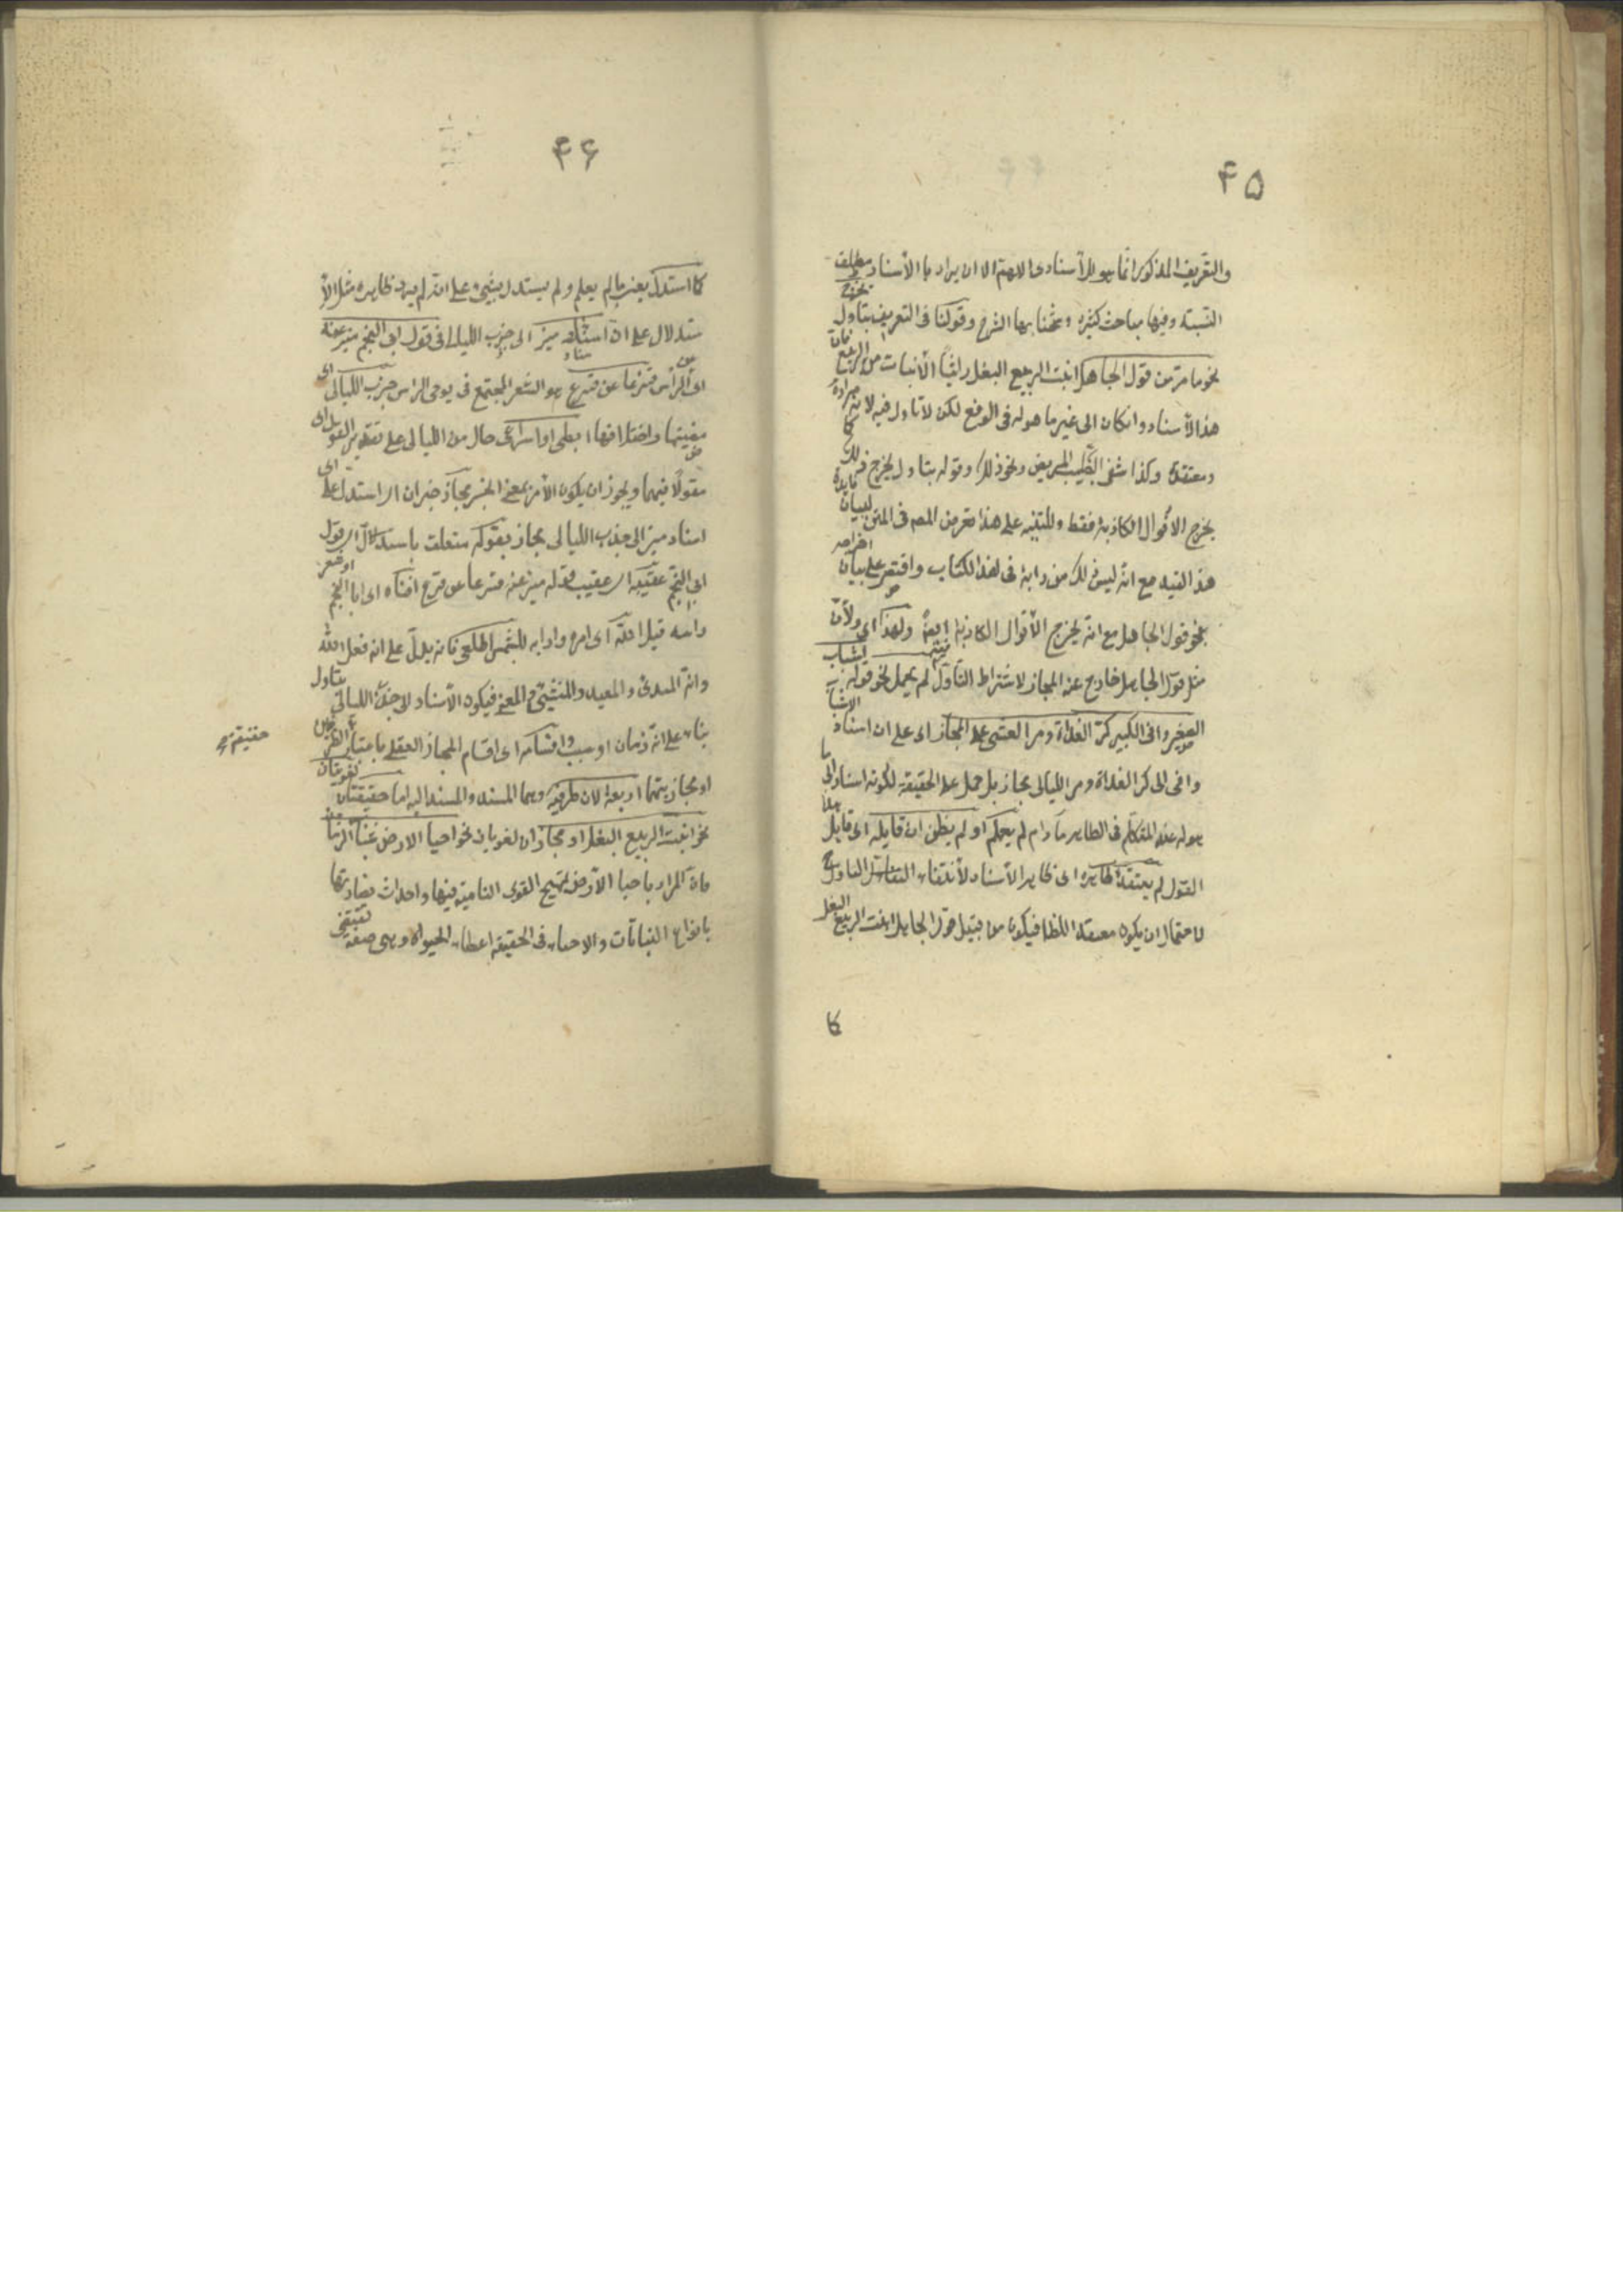 ۴۵
والتعريف المذكور انما هو للاسنادى اللهم الا ان يراد بالأسناد مطلق
النسبة وفيها مباحث كثيرة وشحنا بها الشرح وقولنا فى التعريف بتاول يخرج
نحو ما مر من قول الجاهل انبت الربيع البقل رائيا الأنبات من الربيع فان
هذا الأسناد وانكان الى غير ما هو له فى الواقع لكن لا تاول فيه لانه مراده
ومعتقده وكذا شفى الطبيب المريض ونحو ذلك وقوله بتاول يخرج ذلك كما
يخرج الاقوال الكاذبة فقط وللتنبيه على هذا تعرض المصـ فى المتن لبيان فايدة
هذا القيد مع انه ليس ذلك من دابه فى هذا الكتاب واقتصر على بيان اخراجه
نحو قول الجاهل مع انه يخرج الأقوال الكاذبة ايضا ولهذا اى ولأن
مثل قول الجاهل خارج عن المجاز لاشتراط التأول فيه لم يحمل نحو قوله اشاب
الصغير وافنى الكبير كر الغداة ومر العشى على المجاز اى على ان اسناد اشاب
وافنى الى كر الغداة ومر الليالى مجاز بل حمل على الحقيقة لكونه اسنادا الى ما
هو له عند المتكلم فى الظاهر ما دام لم يعلم او لم يظن ان قايله اى قايل هذا
القول لم يعتقد ظاهره اى ظاهر الأسناد لأنتفاء التاول ح
لاحتمال ان يكون معتقدا للظاهر فيكون من قبيل قول الجاهل انبت الربيع البقل
كما
۴۶
كما استدل يعنى ما لم يعلم ولم يستدل بشىء على انه لم يرد ظاهره مثل الأ
ستدلال على ان اسناد ميز الى جذب الليالى فى قول ابى النجم ميز عنه
اى عن الرأس قنزعا عن قنزع هو الشعر المجتمع فى نواحى الراس جذب الليالى اى
مضيتها واختلافها ابطئ او اسرعى حال من الليالى على تقدير القول اى
مقولا فيهما ويجوز ان يكون الأمر بمعنى الخبر مجاز خبر ان اى استدل على ان
اسناد ميز الى جذب الليالى مجاز بقوله متعلق باستدلال اى بقول
ابى النجم عقيبه اى عقيب قوله ميز عنه قنزعا عن قنزع افناه اى ابا النجم
او شعر راسه قيل الله اى امره وارادته للشمس اطلعى فانه يدل على انه فعل الله
وانه المبدئ والمعيد والمنشئ والمفنى فيكون الأسناد الى جذب الليالى بتاول
بناء على انه زمان او سبب واقسامه اى اقسام المجاز العقلى باعتبار حقيقة الطرفين
او مجازيتهما اربعة لان طرفيه وهما المسند والمسند اليه اما حقيقتان لغويتان
نحو انبت الربيع البقل او مجازان لغويان نحو احيا الارض شباب الزمان
فان المراد باحيا الأرض تهييج القوى النامية فيها واحداث نضارتها
بانواع النباتات والاحياء فى الحقيقة اعطاء الحيوة وهى صفة تقتضى
حقيقة